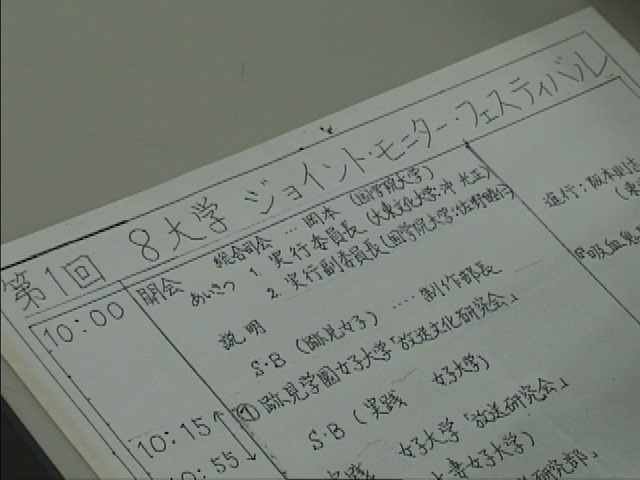 第1回 8大学 ジョイント・モニター・フェスティバル
10:00
開会 総合司会 … 岡本 (国学院大学)
あいさつ 1. 実行委員長 (大東文化大学:沖 光正)
2. 実行副委員長 (国学院大学:佐野
説明
進行:阪本
S・B (跡見女子) …… 制作部長
「吸血鬼
① 跡見学園女子大学「放送文化研究会」
10:15
S・B (実践 女子大学)
10:55
実践 女子大学「放送研究会」
大妻女子大学)
研究部」